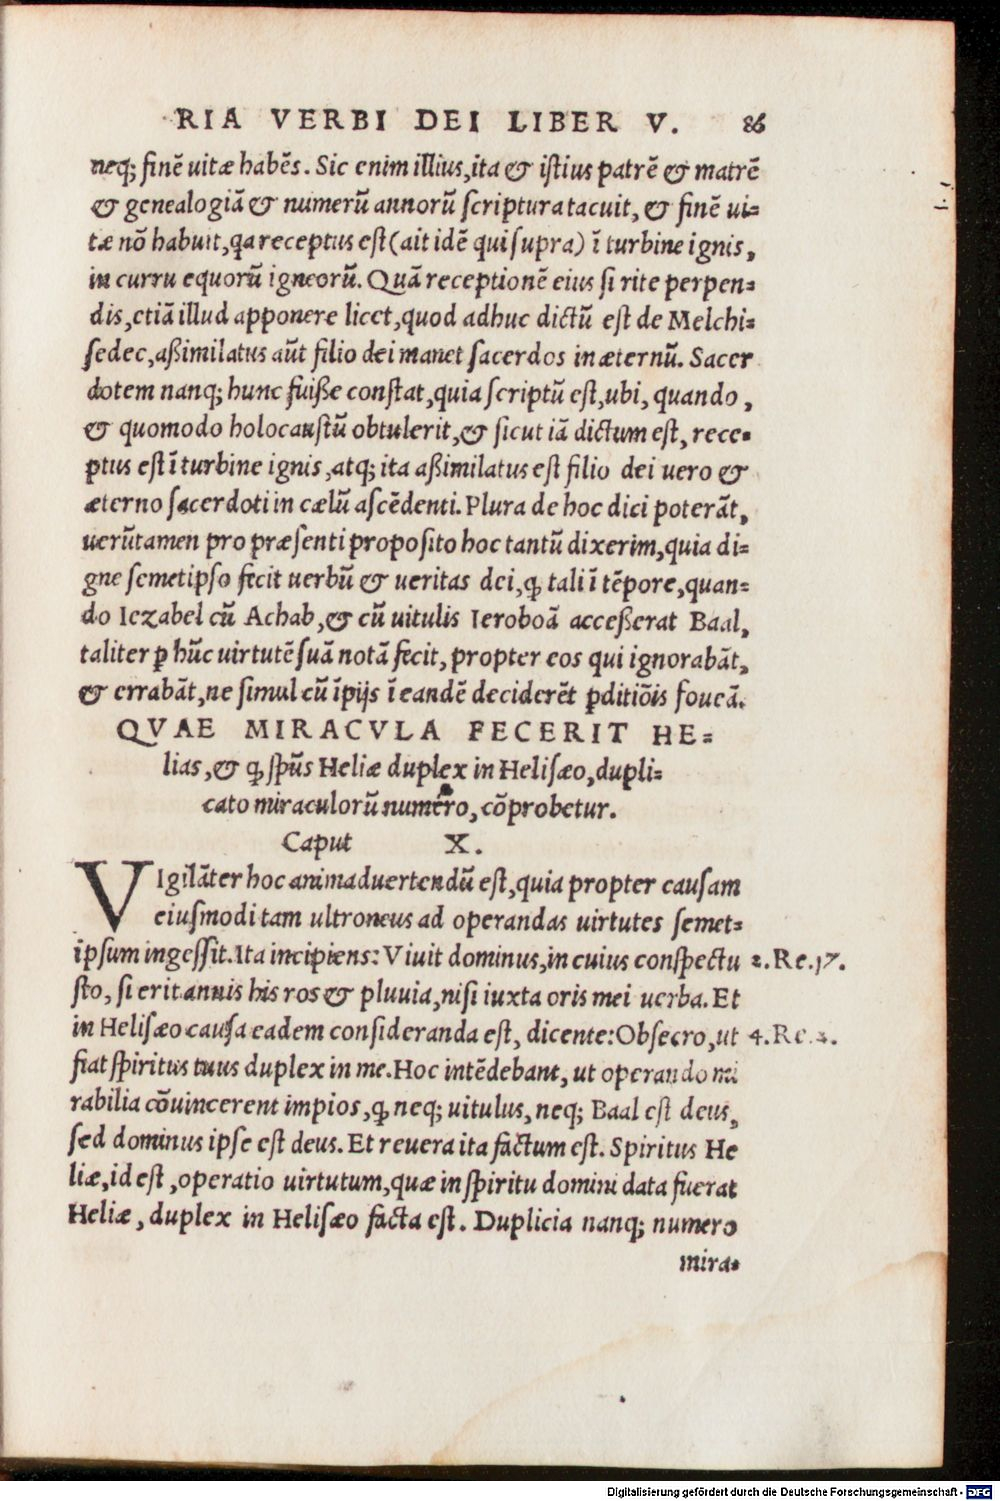 RIA VERBI DEI LIBER V. 86
neq; finē uitæ habēs. Sic enim illius, ita & istius patrē & matrē
& genealogiā & numerū annorū scriptura tacuit, & finē ui=
tæ nō habuit, qa receptus est (ait idē qui supra) ī turbine ignis,
in curru equorū igneorū. Quā receptionē eius si rite perpen=
dis, etiā illud apponere licet, quod adhuc dictū est de Melchi=
sedec, aßimilatus aūt filio dei manet sacerdos in æternū. Sacer
dotem nanq; hunc fuiße constat, quia scriptū est, ubi, quando,
& quomodo holocaustū obtulerit, & sicut iā dictum est, rece=
ptus est ī turbine ignis, atq; ita aßimilatus est filio dei uero &
æterno sacerdoti in cælū ascēdenti. Plura de hoc dici poterāt,
uerūtamen pro præsenti proposito hoc tantū dixerim, quia di=
gne semetipso fecit uerbū & ueritas dei, ꝙ tali ī tēpore, quan=
do Iezabel cū Achab, & cū uitulis Ieroboā acceßerat Baal,
taliter ꝑ hūc uirtutē suā notā fecit, propter eos qui ignorabāt,
& errabāt, ne simul cū īpijs ī eandē deciderēt ꝑditiōis foueā.
QVAE MIRACVLA FECERIT HE=
lias, & ꝙ spūs Heliæ duplex in Helisæo, dupli=
cato miraculorū numero, cōprobetur.
Caput X.
VIgilāter hoc animaduertendū est, quia propter causam
eiusmodi tam ultroneus ad operandas uirtutes semet=
ipsum ingessit. Ita incipiens: Viuit dominus, in cuius conspectu 2. Re. 17.
sto, si erit annis his ros & pluuia, nisi iuxta oris mei uerba. Et
in Helisæo causa eadem consideranda est, dicente: Obsecro, ut 4. Re. 2.
fiat spiritus tuus duplex in me. Hoc intēdebant, ut operando mi
rabilia cōuincerent impios, ꝙ neq; uitulus, neq; Baal est deus,
sed dominus ipse est deus. Et reuera ita factum est. Spiritus He
liæ, id est, operatio uirtutum, quæ in spiritu domini data fuerat
Heliæ, duplex in Helisæo facta est. Duplicia nanq; numero
mira=
Digitalisierung gefördert durch die Deutsche Forschungsgemeinschaft - DFG